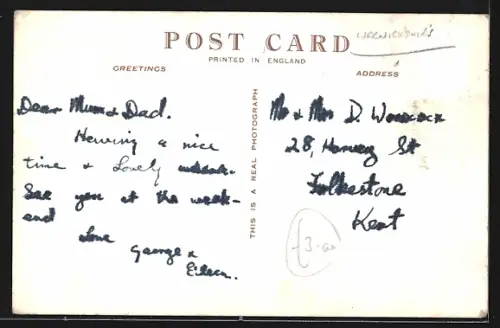 POST CARD
PRINTED IN ENGLAND
GREETINGS
ADDRESS
Dear Mum & Dad.
Having a nice
time & Lovely
See you at the week-
end
Love
George &
Eileen.
THIS IS A REAL PHOTOGRAPH
Mr & Mrs D. Woodcock
28, Harvey St
Folkestone
Kent
£3.00